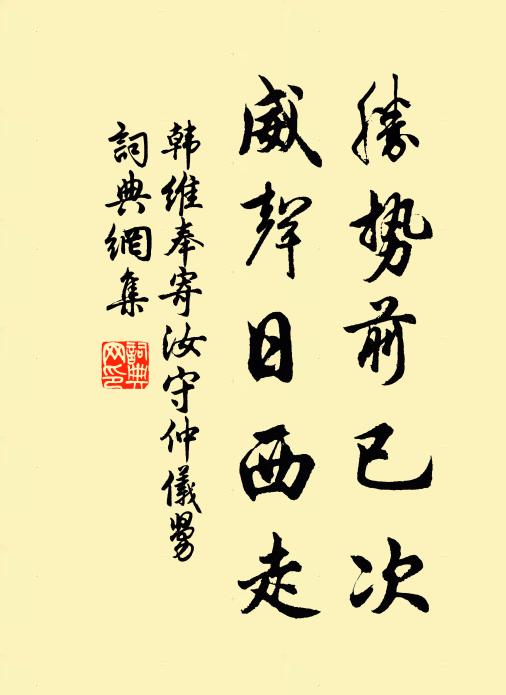 勝势前已次
威聲日西走
韩维奉寄汝守仲儀舅
詞典網集
詞典网印